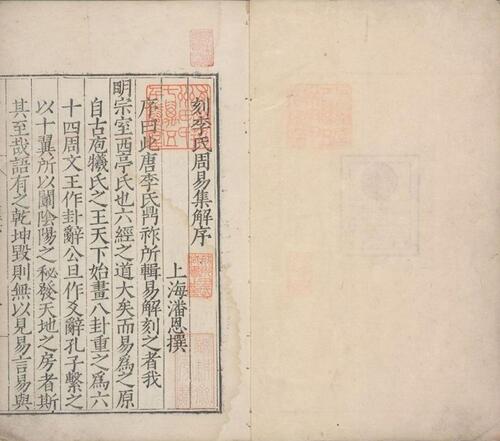 刻李氏周易集解序
上海潘恩撰
序曰此唐李氏鼎祚所輯易解刻之者我
明宗室西亭氏也六經之道大矣而易為之原
自古庖犧氏之王天下始畫八卦重之為六
十四周文王作卦辭公旦作爻辭孔子繫之
以十翼所以闡陰陽之秘發天地之房者斯
其至哉語有之乾坤毀則無以見易言易與